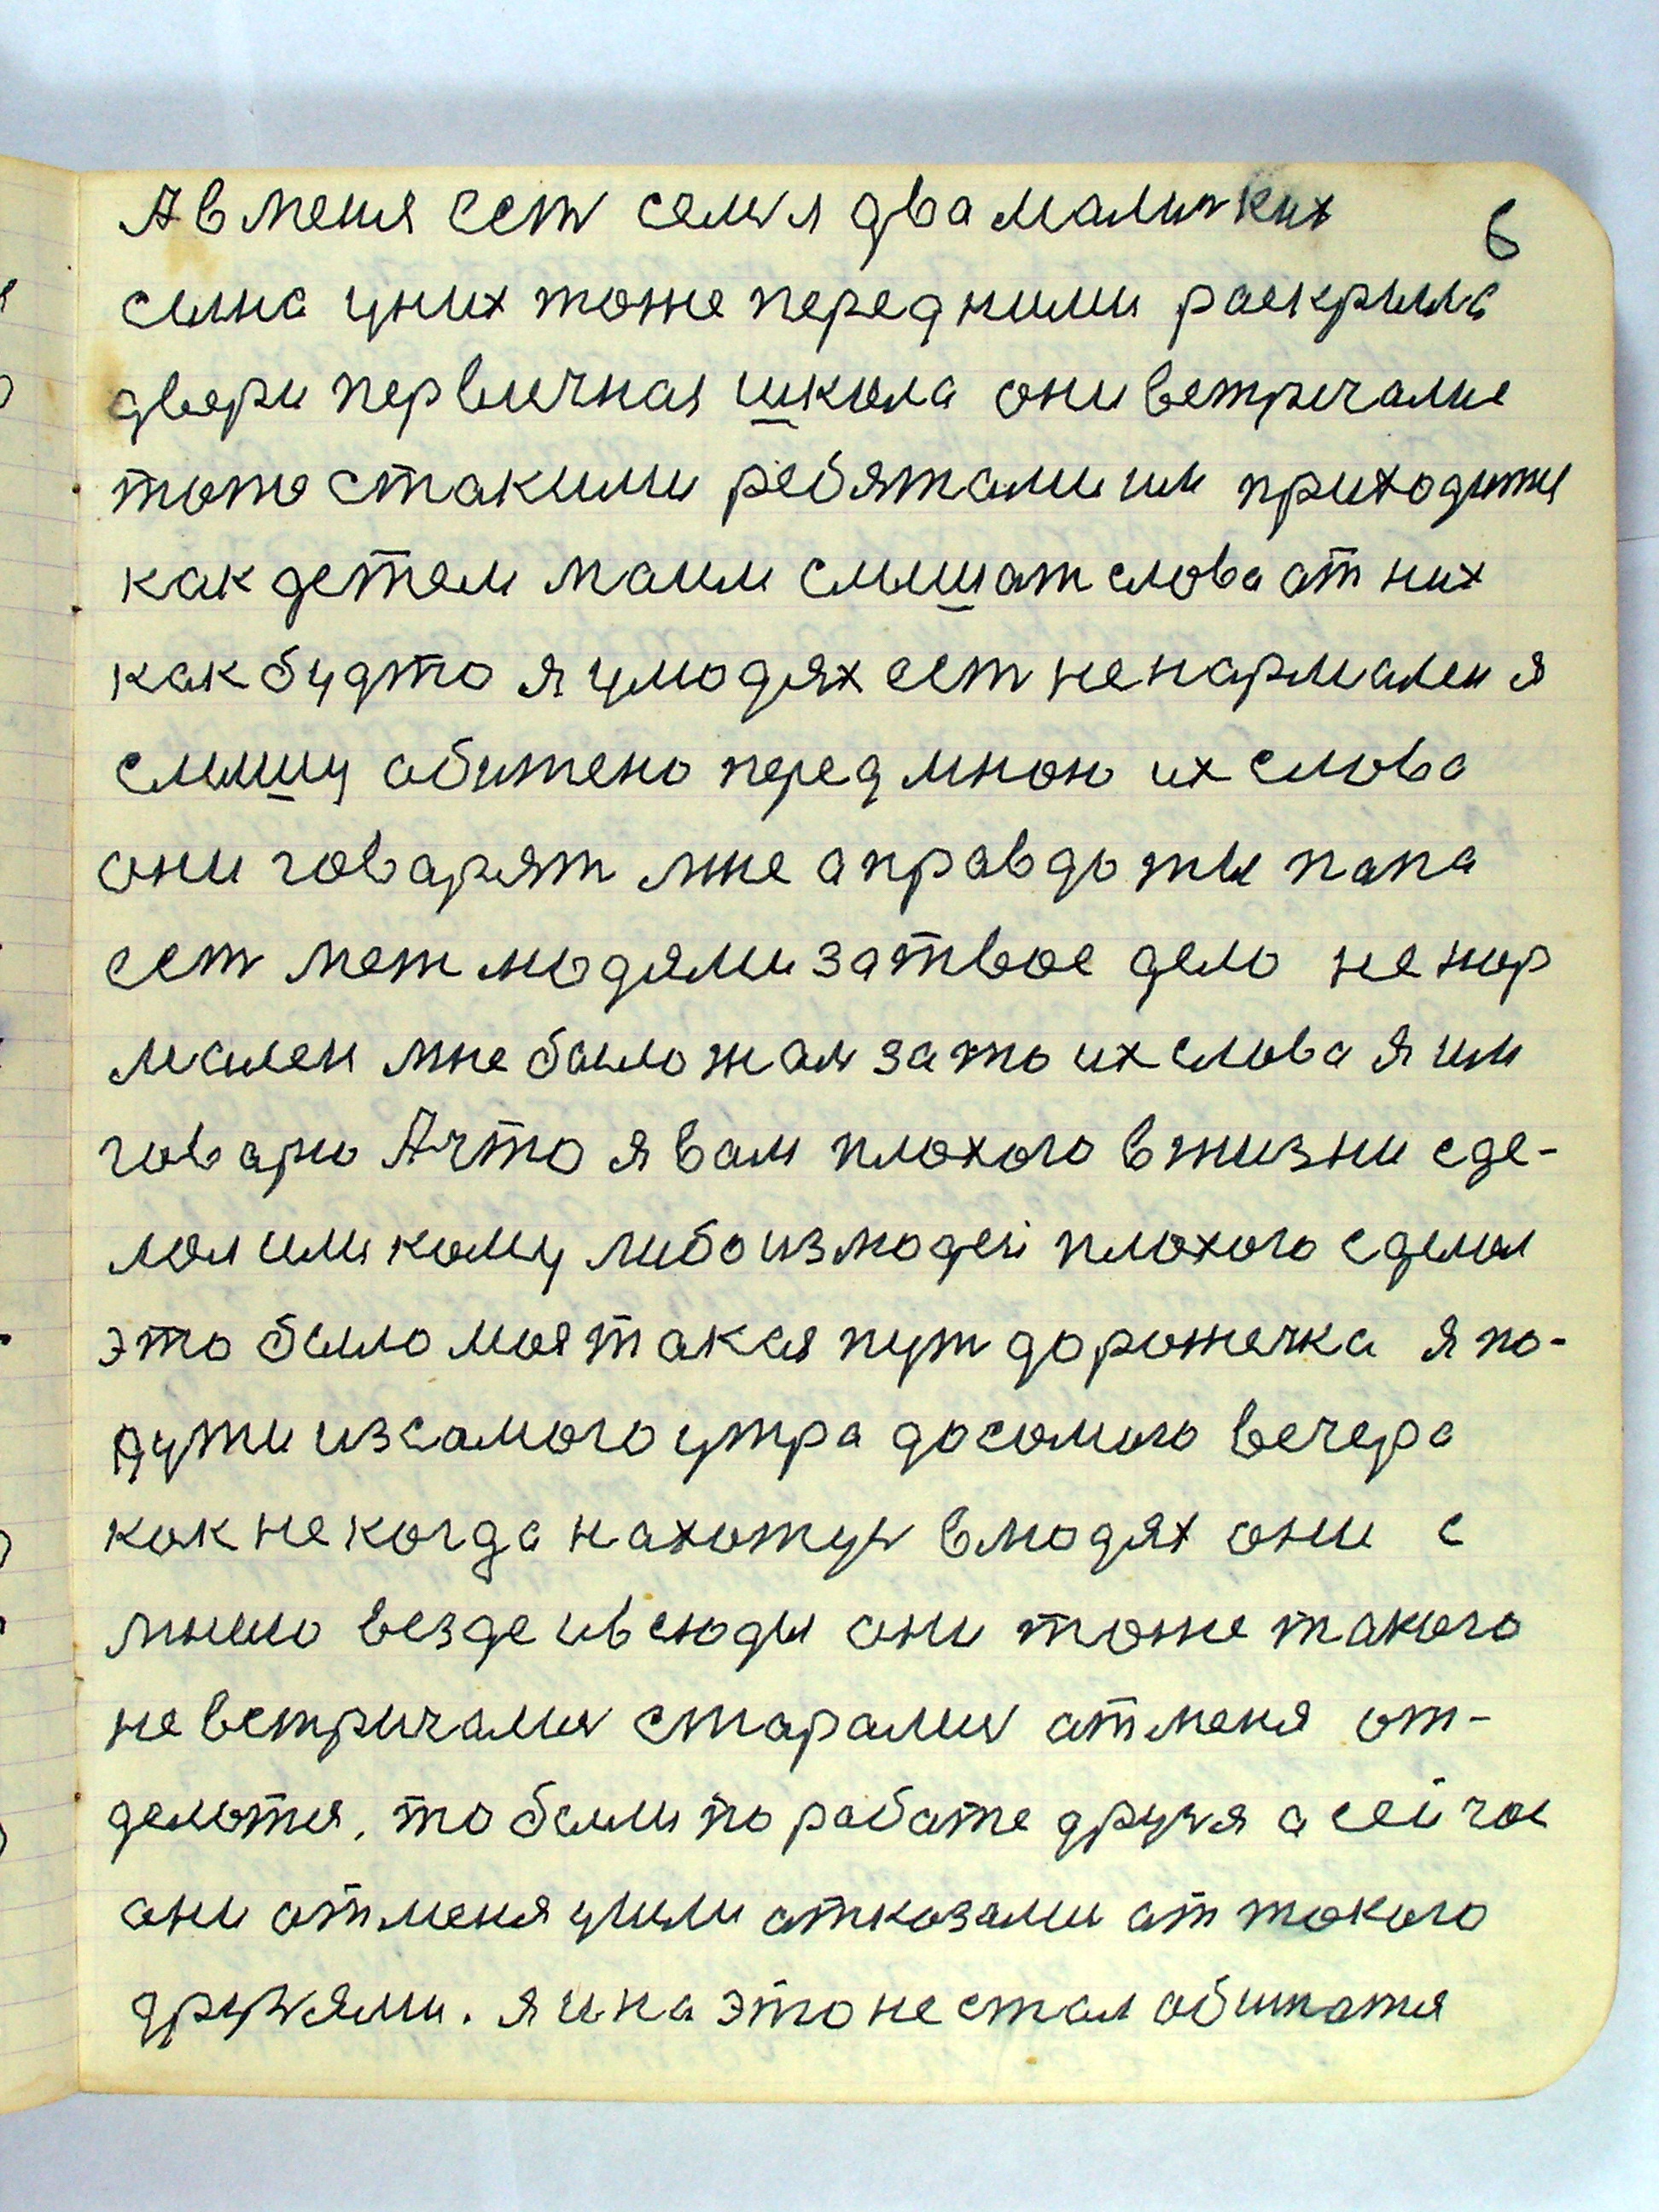 А в меня ест семья два малиньких 6
сына у них тоже перед ними раскрыла
двери первичная школа они встричалис
тоже стакими ребятами им приходится
как детям маим слышат слова от них
как будто я у людях ест ненармален я
слышу обитено передмною их слова
они говарят мне а правда ты папа
ест меж людями за твое дело не нор
мален мне было жаль за то их слова я им
говарю А что я вам плохого в жизни сде-
лал или кому либо из людей плохого сделал
это было моя такая путь дорожечка я по-
дути из самого утра до самого вечера
как не когда нахожусь в людях они с
мною везде и всюды они тоже такого
не встричались старались от меня от-
делится, то были по работе друзья а сейчас
они от меня ушли отказались от такого
друзями. я и на это не стал обижатся